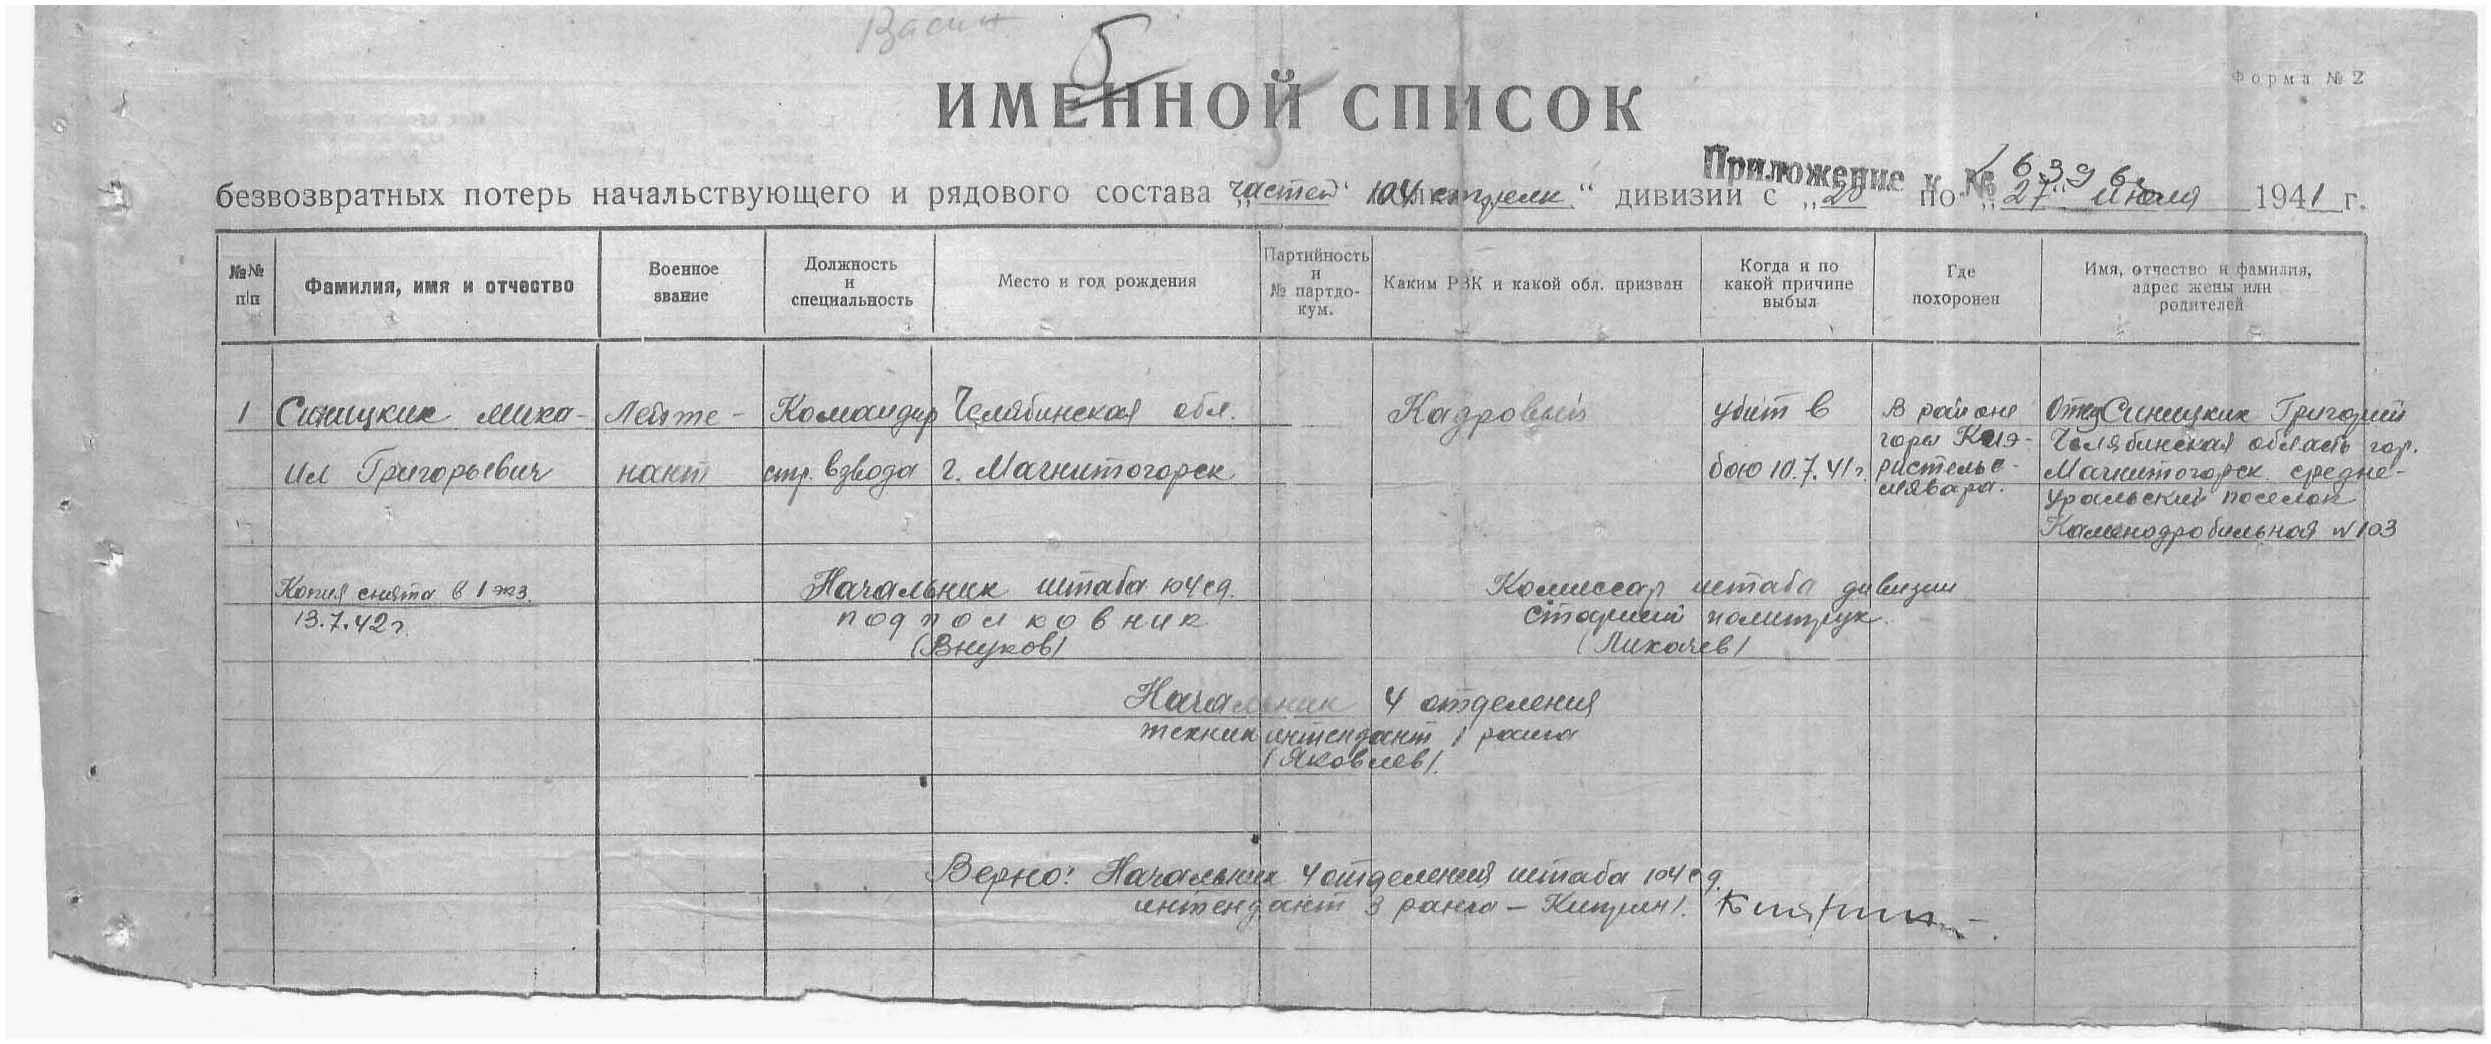 Васин
5
Форма № 2
ИМЕННОЙ СПИСОК
Приложение к № 6396
безвозвратных потерь начальствующего и рядового состава „частей“ 104 стрелк “ дивизии с „20 по „27“ июля 1941 г.
№№ п/п
Фамилия, имя и отчество
Военное звание
Должность и специальность
Место и год рождения
Партийность и № партдокум.
Каким РВК и какой обл. призван
Когда и по какой причине выбыл
Где похоронен
Имя, отчество и фамилия, адрес жены или родителей
1 Синицкик миха- Лейте- Командир Челябинская обл. Кадровый убит в В районе Отец Синицкик Григорий
горы Киэ- Челябинская область гор.
ил Григорьевич нант стр. взвода г. Магнитогорск бою 10.7.41 г. ристельс- Магнитогорск средне-
мявара. уральский поселок
Каменодробильная N 103
Копия снята в 1 экз. Начальник штаба 104 сд. Комиссар штаба дивизии
13.7.42 г. подполковник Старший политрук
(Внуков) (Лихачев)
Начальник 4 отделения
техник интендант 1 ранга
(Яковлев).
Верно: Начальник 4 отделения штаба 104 сд.
интендант 3 ранга –